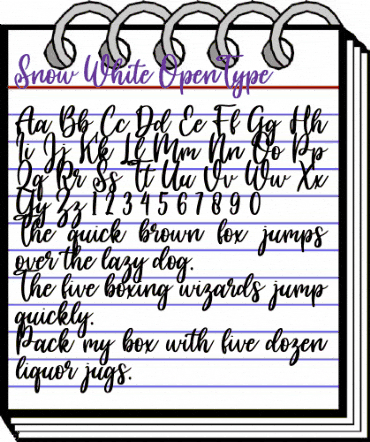 Snow White OpenType
Aa Bb Cc Dd Ee Ff Gg Hh
Ii Jj Kk Ll Mm Nn Oo Pp
Qq Rr Ss Tt Uu Vv Ww Xx
Yy Zz 1 2 3 4 5 6 7 8 9 0
The quick brown fox jumps
over the lazy dog.
The five boxing wizards jump
quickly.
Pack my box with five dozen
liquor jugs.